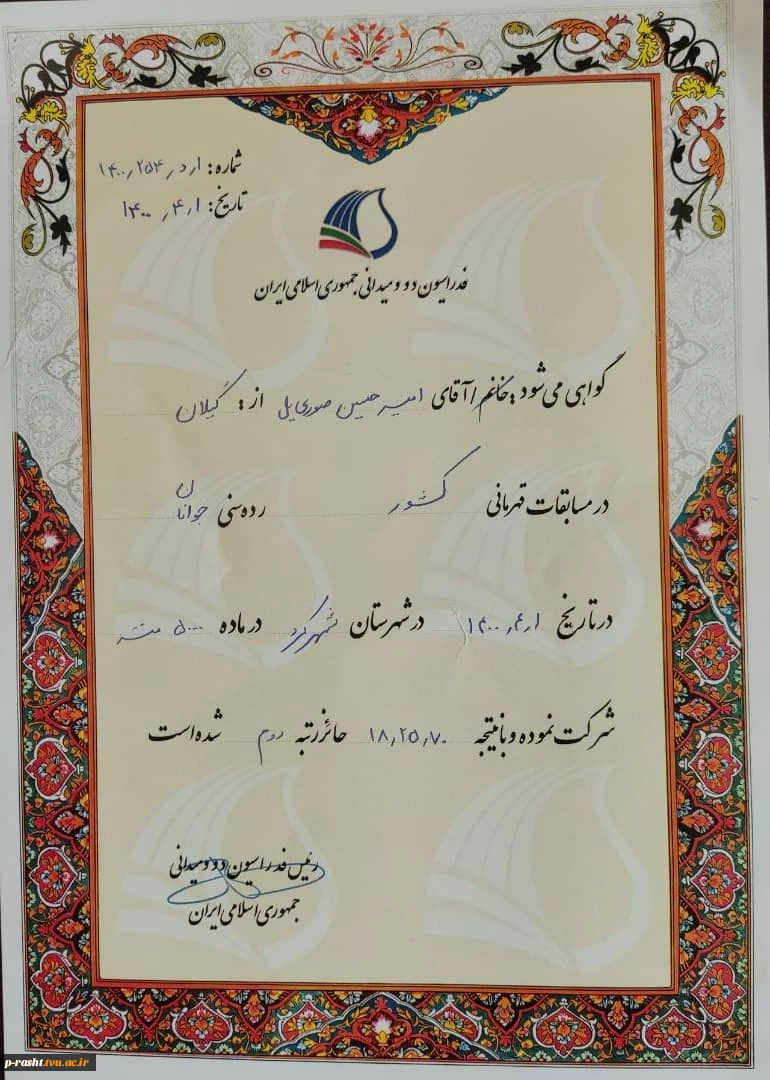 شماره: ۱ر د ر ۲۵۴ ر ۱۴۰۰
تاریخ: ۱ ر ۴ ر ۱۴۰۰
فدراسیون دو و میدانی جمهوری اسلامی ایران
گواهی می شود: خانم / آقای امیر حسین صوری یل از: گیلان
در مسابقات قهرمانی کشور رده سنی جوانان
در تاریخ ۱ ر ۴ ر ۱۴۰۰ در شهرستان شهرکرد در ماده ۵۰۰۰ متر
شرکت نموده و با نتیجه ۱۸ ر ۲۵ ر ۷۰ حائز رتبه دوم شده است
رئیس فدراسیون دو و میدانی
جمهوری اسلامی ایران
p-rasht.tvu.ac.ir